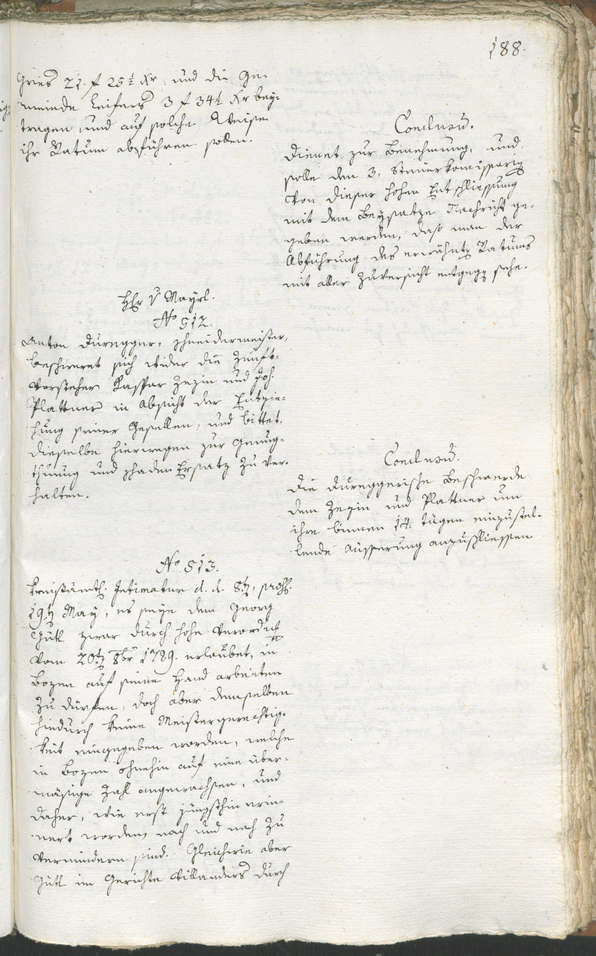 188.
Gries 21 f 25½ Xr, und die Ge-
meinde Leifers 3 f 34½ Xr bey-
tragen, und auf solche Weise
ihr Ratum abführen sollen.
Conclusum.
Dienet zur Benehmung, und
solle den 3 Steuerkommissarien
von dieser hohen Entschliessung
mit dem Beysatze Nachricht ge-
geben werden, daß man der
Abführung des erwähnten Ratums
mit aller Zuversicht entgegen sehe.
Hr v Mayrl.
No 512.
Anton Duregger, Schneidermeister,
beschweret sich wider die Zunft-
vorsteher Kaspar Zezin und Joh.
Plattner in Absicht der Entzie-
hung seiner Gesellen, und bittet,
dieselbe hierwegen zur Genug-
thuung und Schaden Ersatz zu ver-
halten.
Conclusum.
Die Dureggerische Beschwerde
dem Zezin und Plattner um
ihre binnen 14 Tägen einzustel-
lende Äusserung anzuschliessen
No 513.
Kreisämtl. Intimatum d. d. 8t,
19t May, es seye dem Georg
Gütl zwar durch hohe Verordnung
vom 20ten 8br 1789. erlaubet, in
Bozen auf seine Hand arbeiten
zu dürfen, doch aber demselben
hindurch keine Meistergerechtig-
keit eingegeben worden, welche
in Bozen ohnehin auf eine über-
mäßige Zahl angewachsen, und
daher, wie erst jüngsthin erin-
nert worden, nach und nach zu
vermindern sind. Gleichwie aber
Gütl im Gerichte Villanders durch